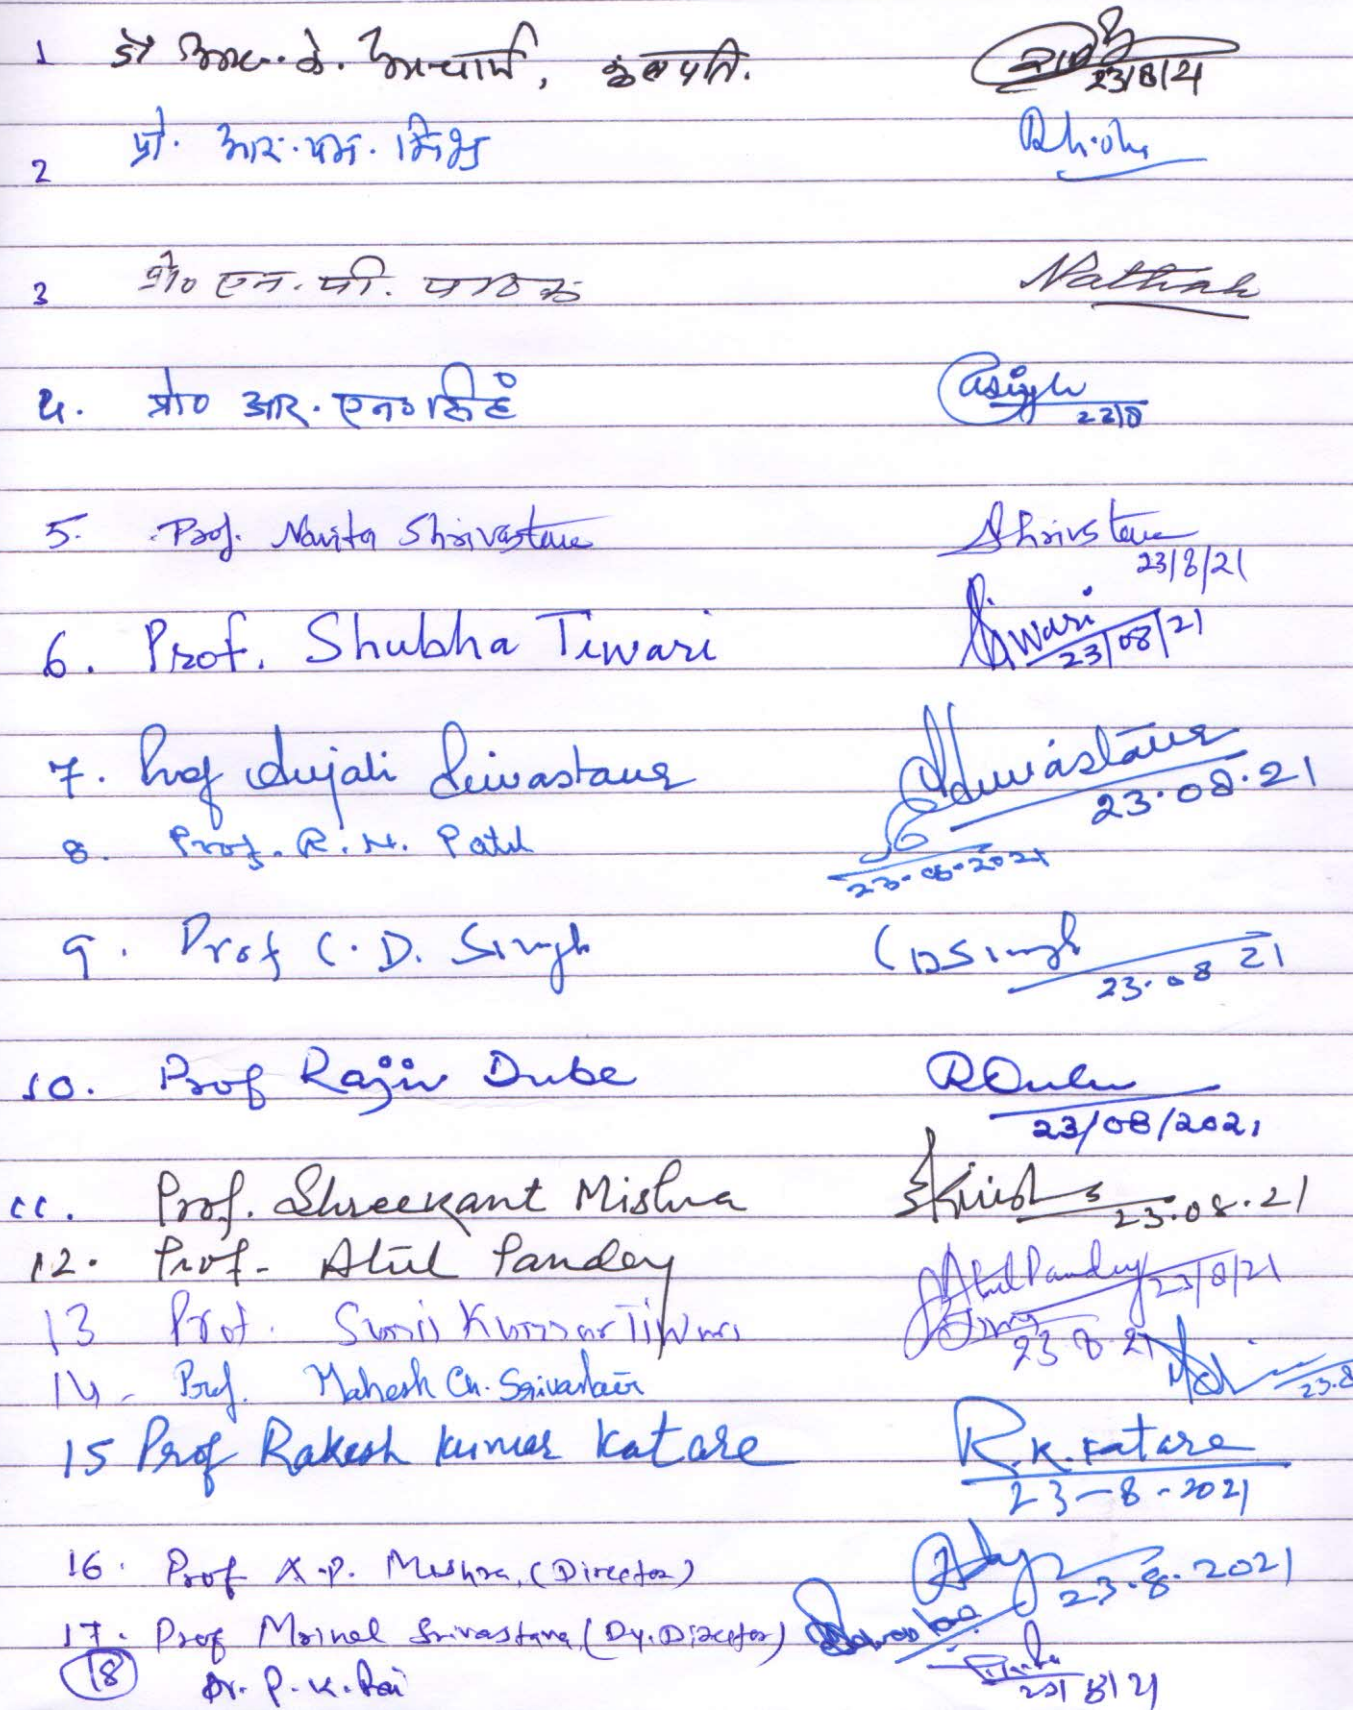 1 डॉ आर. के. आचार्य, कुलपति. 23/8/21
2 प्रो. आर. एम. मिश्र
3 प्रो० एन. पी. पाठक NPathak
4. प्रो० आर. एन० सिंह RNSingh 23/8
5. Prof. Navita Shrivastava Shrivstava 23/8/21
6. Prof. Shubha Tiwari Tiwari 23/08/21
7. Prof Anjali Srivastava ASrivastava 23.08.21
8. Prof. R. N. Patel 23-08-2021
9. Prof C. D. Singh CDSingh 23.08 21
10. Prof Rajiv Dube RDube 23/08/2021
11. Prof. Shreekant Mishra 23.08.21
12. Prof- Atul Pandey Atul Pandey 23/8/21
13 Prof. Sunil Kumar Tiwari 23 8 21
14 - Prof. Mahesh Ch. Srivastava 23.8
15 Prof Rakesh kumar katare R.K.Katare 23-8-2021
16. Prof A.P. Mishra, (Director) 23.8.2021
17. Prof Mrinal Srivastava (Dy. Director)
18 Dr. P. K. Rai 23/8/21